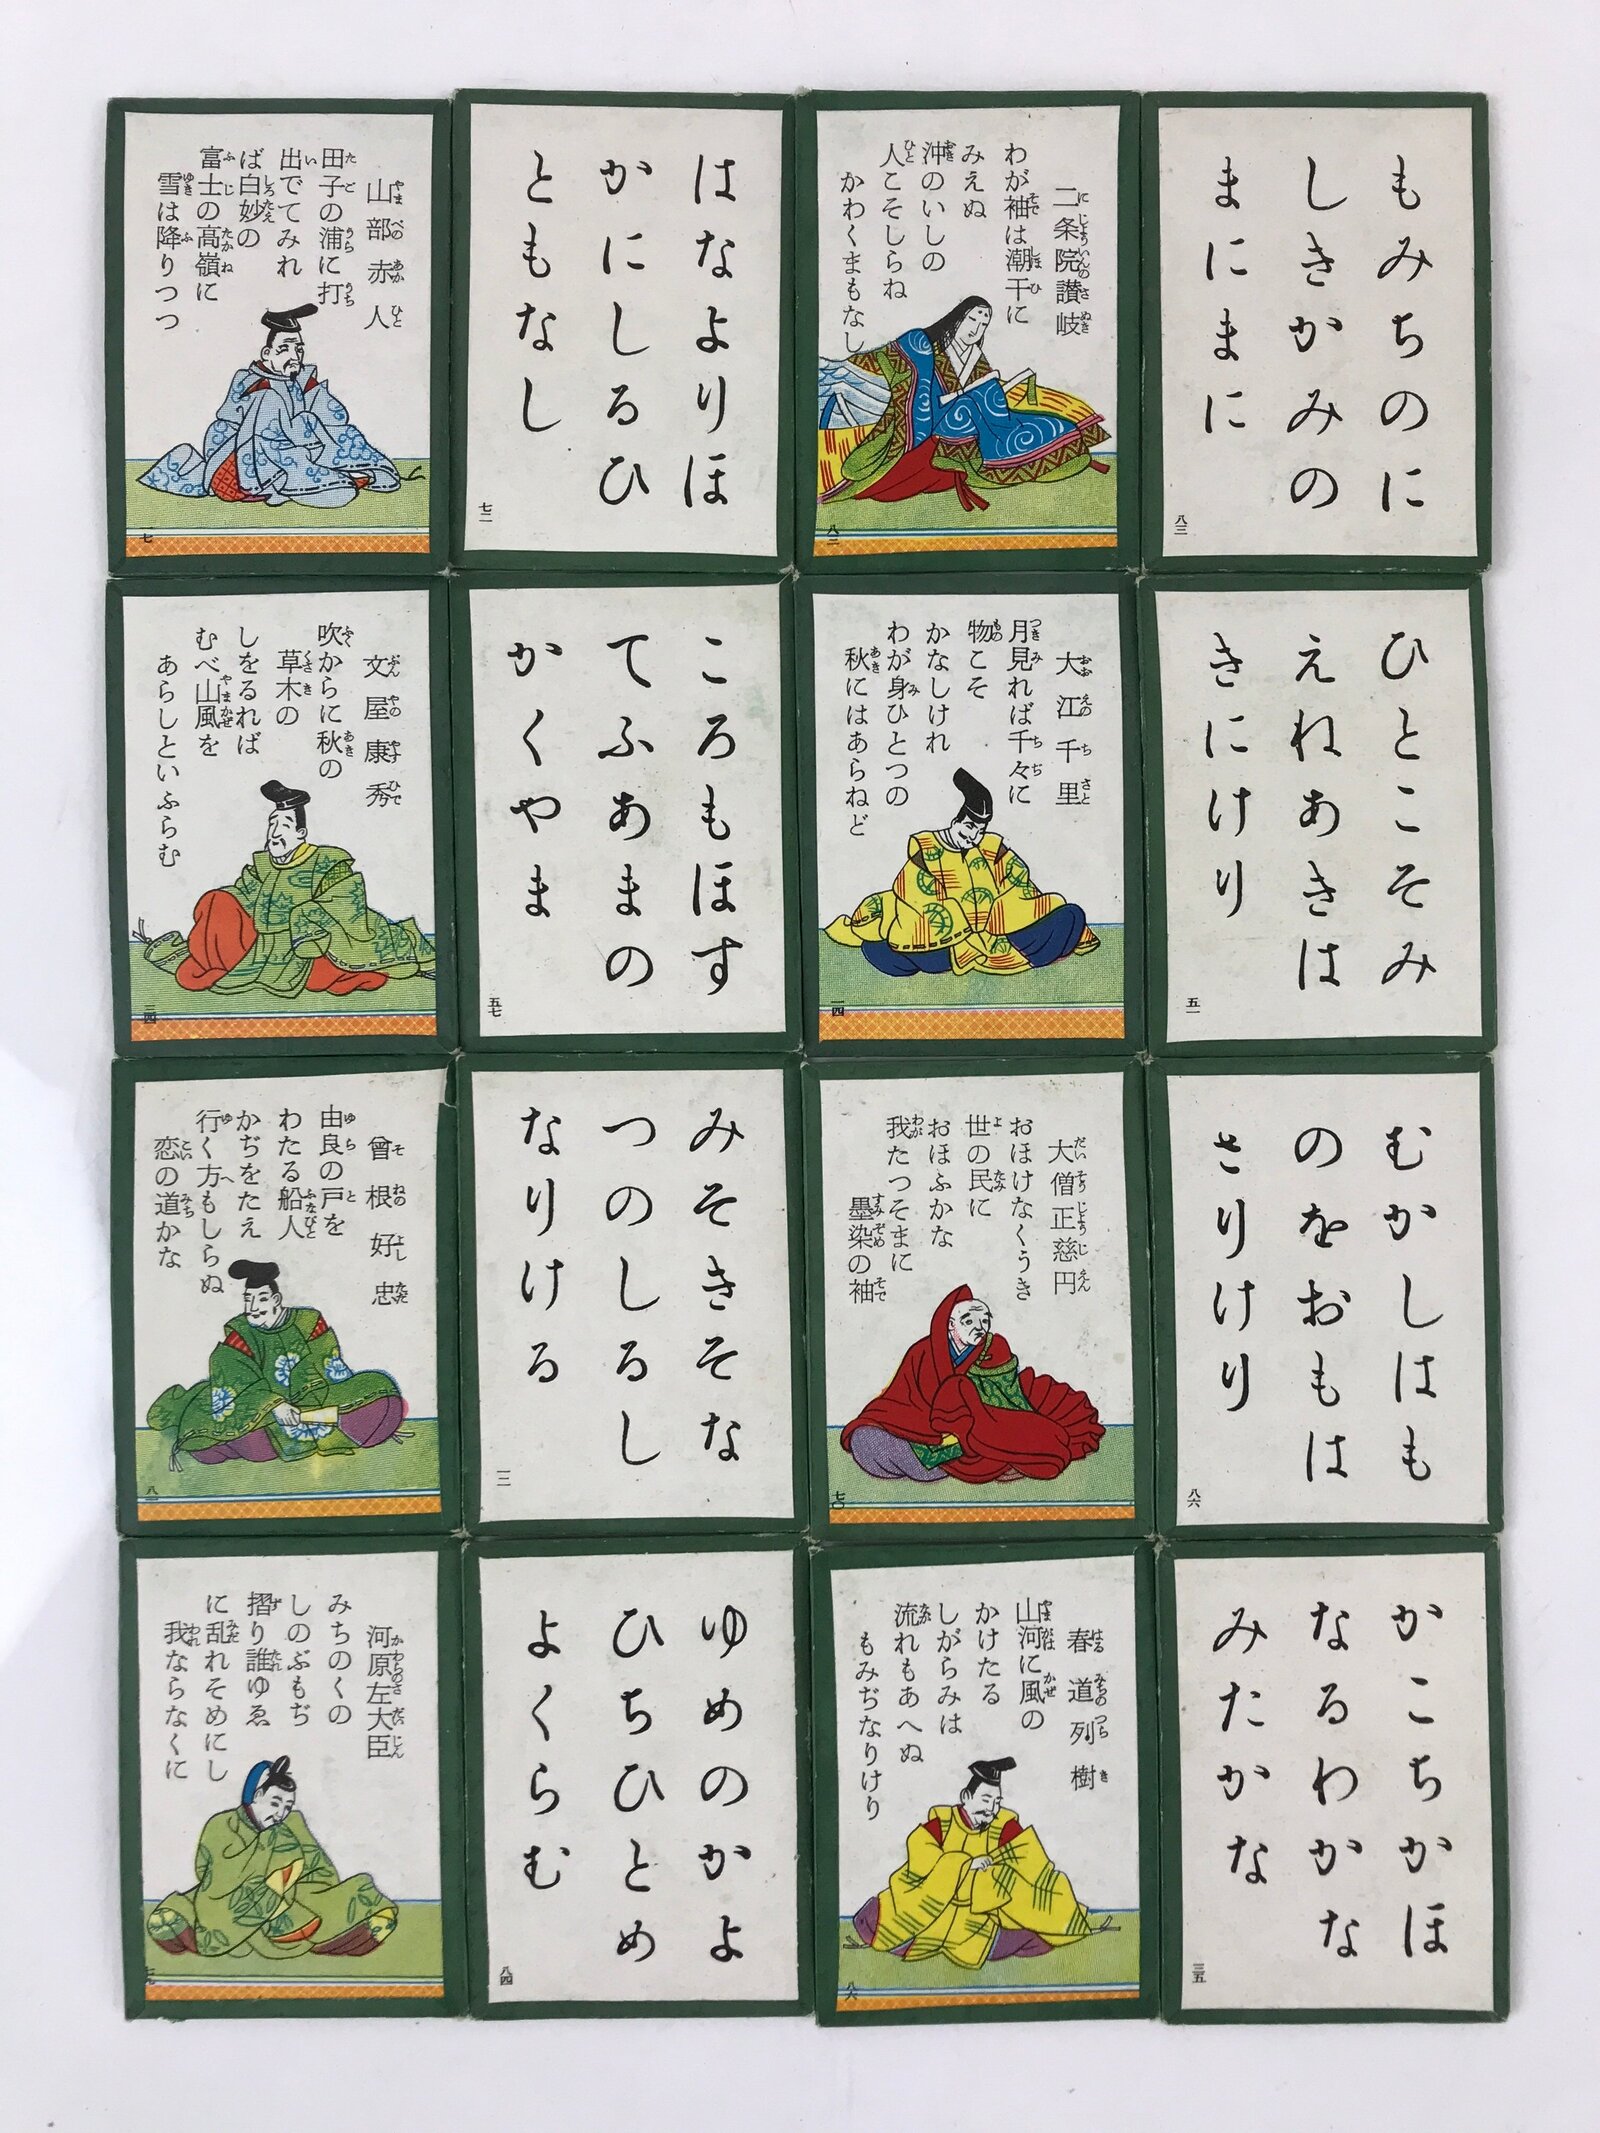 山部赤人
田子の浦に打
出でてみれ
ば白妙の
富士の高嶺に
雪は降りつつ
はなよりほ
かにしるひ
ともなし
七二
二条院讃岐
わが袖は潮干に
みえぬ
沖のいしの
人こそしらね
かわくまもなし
八三
もみちのに
しきかみの
まにまに
八三
文屋康秀
吹からに秋の
草木の
しをるれば
むべ山風を
あらしといふらむ
三四
ころもほす
てふあまの
かくやま
五七
大江千里
月見れば千々に
物こそ
かなしけれ
わが身ひとつの
秋にはあらねど
一四
ひとこそみ
えねあきは
きにけり
五一
曾根好忠
由良の戸を
わたる船人
かぢをたえ
行く方もしらぬ
恋の道かな
八一
みそきそな
つのしるし
なりける
大僧正慈円
おほけなくうき
世の民に
おほふかな
我たつそまに
墨染の袖
七〇
むかしはも
のをおもは
さりけり
八六
河原左大臣
みちのくの
しのぶもぢ
摺り誰ゆゑ
に乱れそめにし
我ならなくに
ゆめのかよ
ひちひとめ
よくらむ
八四
春道列樹
山河に風の
かけたる
しがらみは
流れもあへぬ
もみぢなりけり
八六
かこちかほ
なるわかな
みたかな
三五